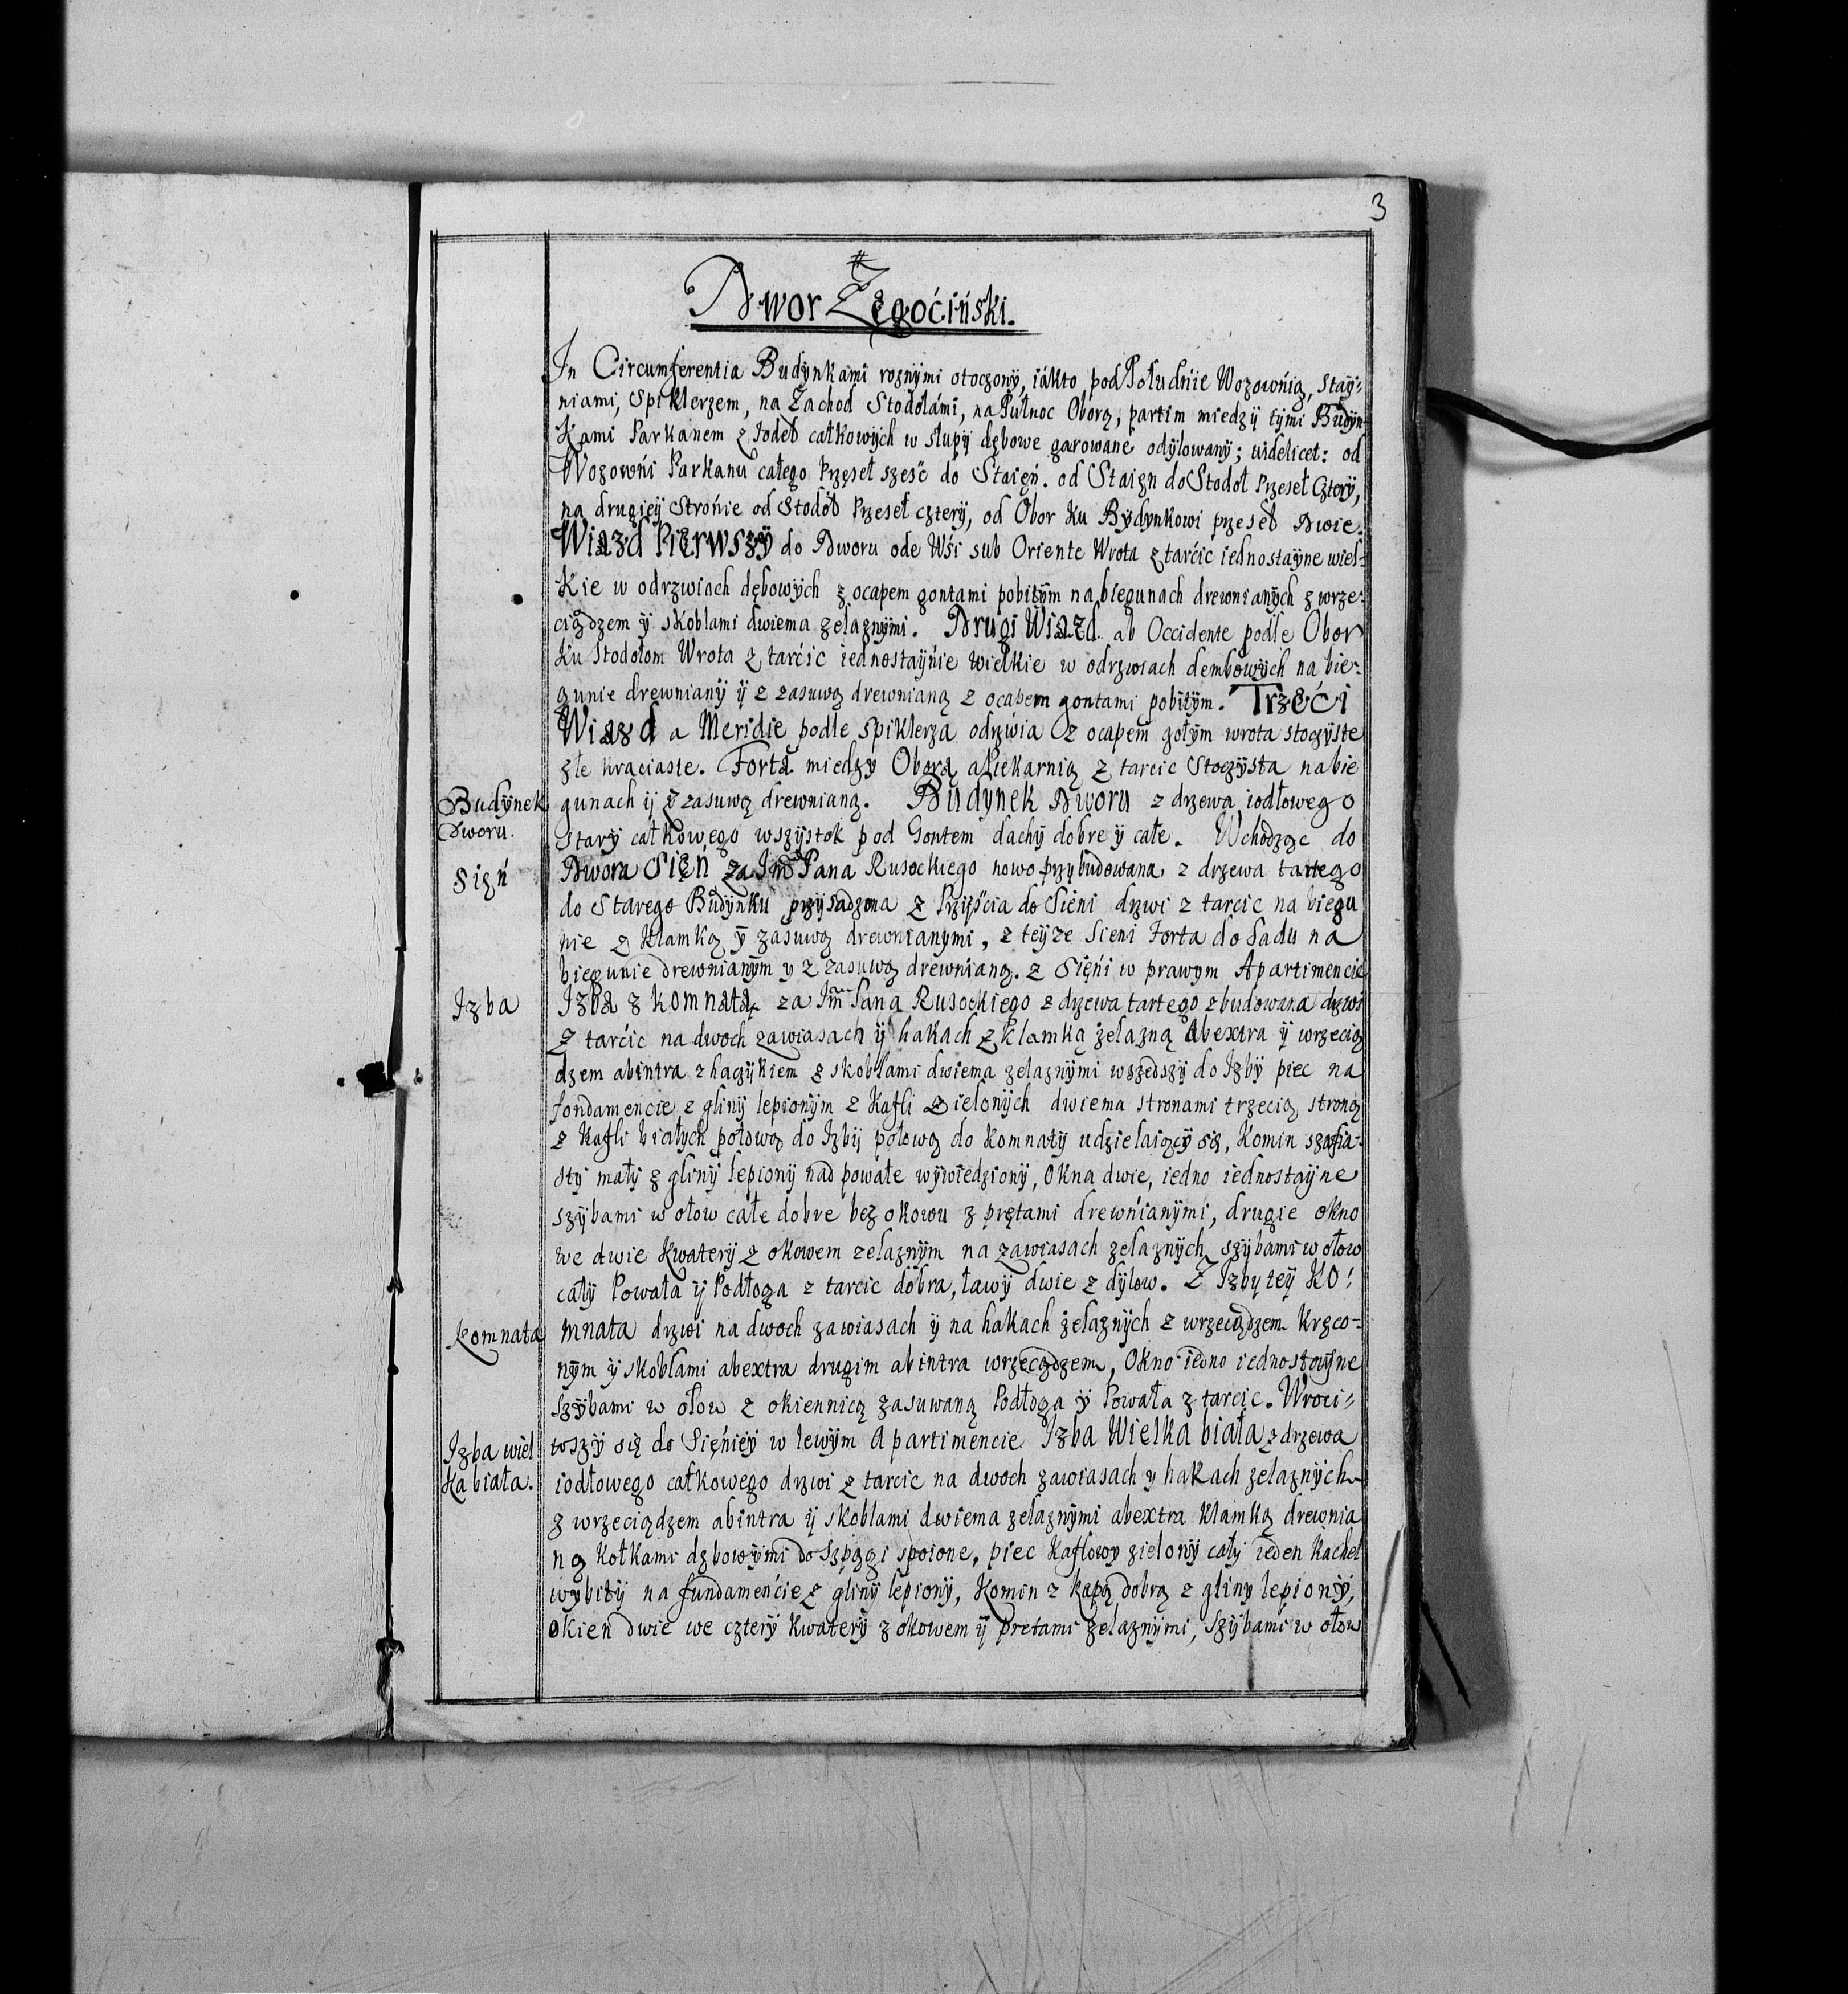 3
Dwor Zegociński.
In Circumferentia Budynkami roznymi otoczony, iákto pod Południe Wozownią, stay=
niami, Spiklerzem, na Zachod Stodołámi, na Pułnoc Oborą, partim miedzy tymi Budyn
kami Parkanem z Jodeł całkowych w słupy dębowe garowane odylowany; videlicet: od
Wozowni Parkanu całego Przęseł szesć do Staięń. od Staięn do Stodoł Przeseł Cztery,
na drugiey Stronie od Stodoł Przeseł cztery, od Obor ku Budynkowi przeseł Dwie.
Wiazd Pierwszy do Dworu ode Wśi sub Oriente Wrota z tarćic iednostayne wiel=
kie w odrzwiach dębowych z ocapem gontami pobitym na biegunach drewnianych z wrze=
ciądzem y skoblami dwiema zelaznymi. Drugi Wiazd ab Occidente podle Obor
ku Stodołom Wrota z tarćic iednostayńie wielkie w odrzwiach dembowych na bie=
gunie drewniany y z zasuwą drewnianą z ocapem gontami pobitym. Trzeći
Wiazd a Meridie podle Spiklerza odrzwia z ocapem gołym wrota stoczyste
złe kraciaste. Forta miedzy Oborą a Piekarnią z tarcic Stoczysta na bie
Budynek Dworu.
gunach y z zasuwą drewnianą. Budynek Dworu z drzewa iodłowego
stary całkowego wszystek pod Gontem dachy dobre y całe. Wchodząc do
Sięń
Dworu Sięń za Jm Pana Rusockiego nowo przybudowana, z drzewa tartego
do Starego Budynku przysadzona z Przyiścia do Sieni drzwi z tarcic na biegu
nie z klamką y zasuwą drewnianymi, z teyze Sieni Forta do Sadu na
biegunie drewnianym y z zasuwą drewnianą. z Sięńi w prawym Apartimencie
Izba
Izba z komnatą za Jm Pana Rusockiego z drzewa tartego zbudowana drzwi
z tarćic na dwoch zawiasach y hakach z klamką zelazną abextra y wrzecią
dzem abintra z haczykiem z skoblami dwiema zelaznymi wszedszy do Izby piec na
fondamencie z gliny lepionym z Kafli zielonych dwiema stronami trzecią stroną
z Kafli białych połową do Izby połową do komnaty udzielaiący się, Komin szafia=
sty mały z gliny lepiony nad powałe wywiedziony, Okna dwie, iedno iednostayne
szybami w ołow całe dobre bez okowu z prętami drewńianymi, drugie okno
we dwie kwatery z okowem zelaznym na zawiasach zelaznych szybami w ołow
cały Powała y Podłoga z tarcic dobra, ławy dwie z dylow. Z Izby tey Ko=
komnata
mnata drzwi na dwoch zawiasach y na hakach zelaznych z wrzeciądzem krzco=
nym y skoblami abextra drugim abintra wrzecądzem, Okno iedno iednostayne
szybami w ołow z okiennicą zasuwaną Podłoga y Powała z tarcic. Wroci=
Izba wiel
ka biała.
wszy się do Sięńiey w lewym Apartimencie Izba Wielka biała z drzewa
iodłowego całkowego drzwi z tarcic na dwoch zawiasach y hakach zelaznych
z wrzeciądzem abintra y skoblami dwiema zelaznymi abextra klamką drewnia
ną kołkami dębowymi do Szpągi spoione, piec kaflowy zielony cały ieden kachel
wybity na fundamenćie z gliny lepiony, Komin z kapą dobrą z gliny lepiony,
okien dwie we cztery kwatery z okowem y pretami zelaznymi, szybami w ołow